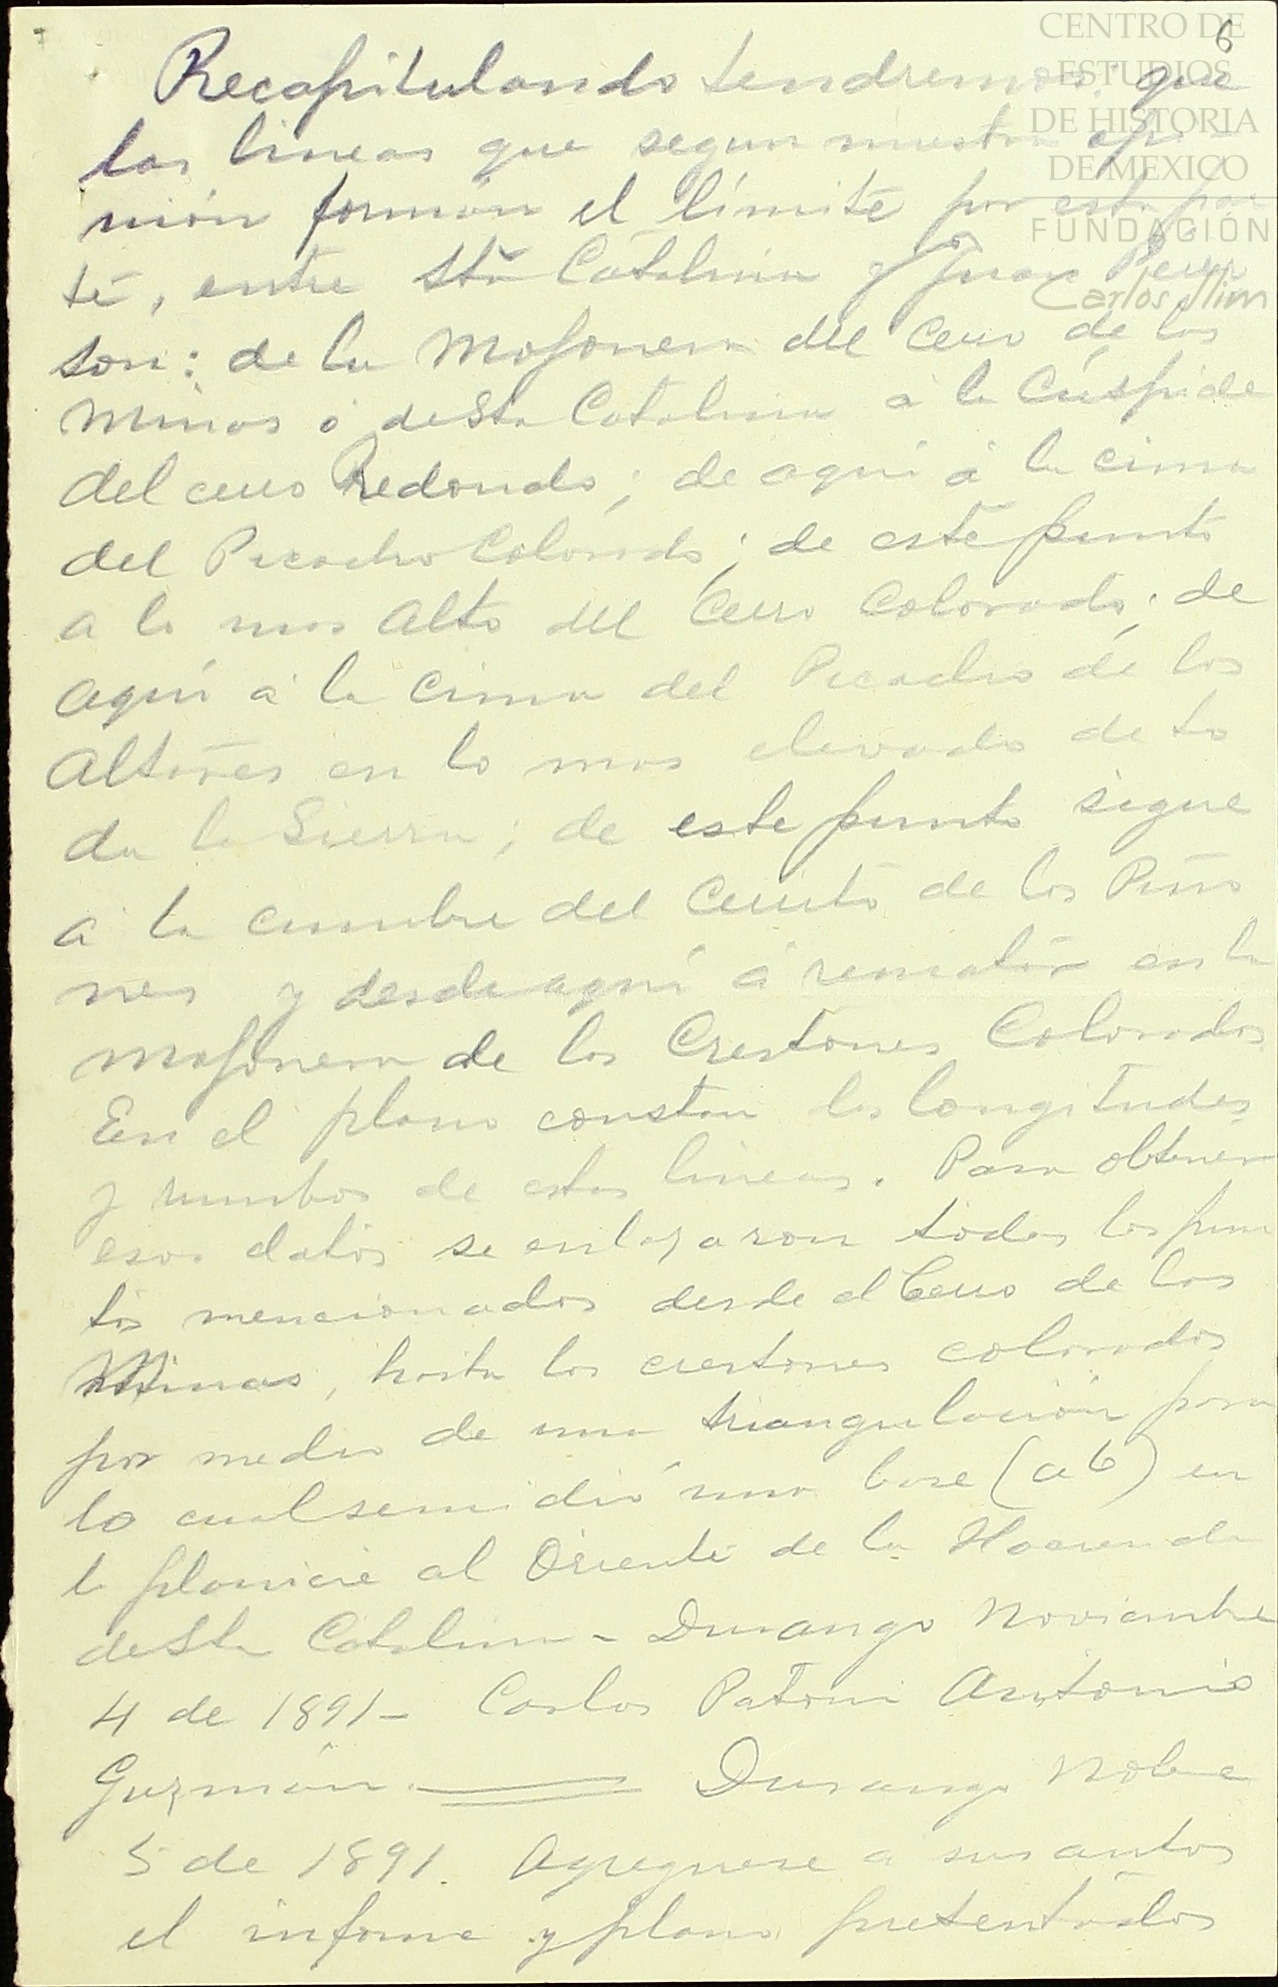 6
Recapitulando tendremos, que
las lineas que segun nuestra opi-
nión forman el límite por esta par
te, entre Sta Catalina y Juan Perez
son: de la Mojonera del Cerro de las
Minas ó de Sta Catalina á la Cúspide
del cerro Redondo; de aquí á la cima
del Picacho Colorado; de este punto
a lo mas alto del Cerro Colorado; de
aquí á la cima del Picacho de los
Altares en lo mas elevado de to
da la Sierra; de este punto sigue
á la cumbre del Cerrito de los Piño
nes y desde aquí á rematar en la
mojonera de los Crestones Colorados.
En el plano constan las longitudes
y rumbos de estas lineas. Para obtener
esos datos se enlazaron todos los pun
tos mencionados desde el Cerro de las
Minas, hasta los crestones colorados
por medio de una triangulación para
lo cual se midió una base (a b) en
la planicie al Oriente de la Hacienda
de Sta Catalina - Durango Noviembre
4 de 1891 - Carlos Patoni Antonio
Guzmán. Durango Nobre
5 de 1891. Agreguese a sus autos
el informe y plano presentados
CENTRO DE
ESTUDIOS
DE HISTORIA
DE MEXICO
FUNDACIÓN
Carlos Slim